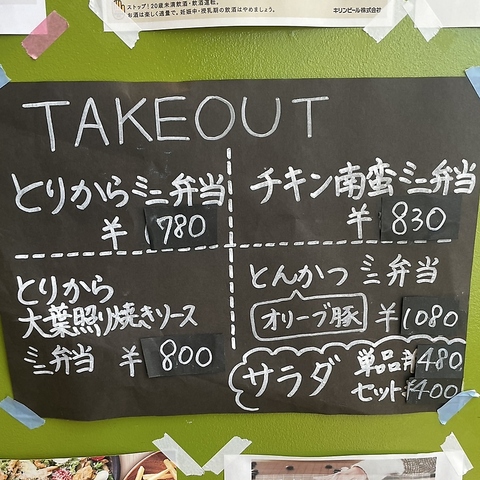 ストップ!20歳未満飲酒・飲酒運転。
お酒は楽しく適量で。妊娠中・授乳期の飲酒はやめましょう。
キリンビール株式会社
TAKEOUT
とりからミニ弁当
¥780
チキン南蛮ミニ弁当
¥830
とりから
大葉照り焼きソース
ミニ弁当 ¥800
とんかつ ミニ弁当
オリーブ豚 ¥1080
サラダ
単品¥480
セット¥400